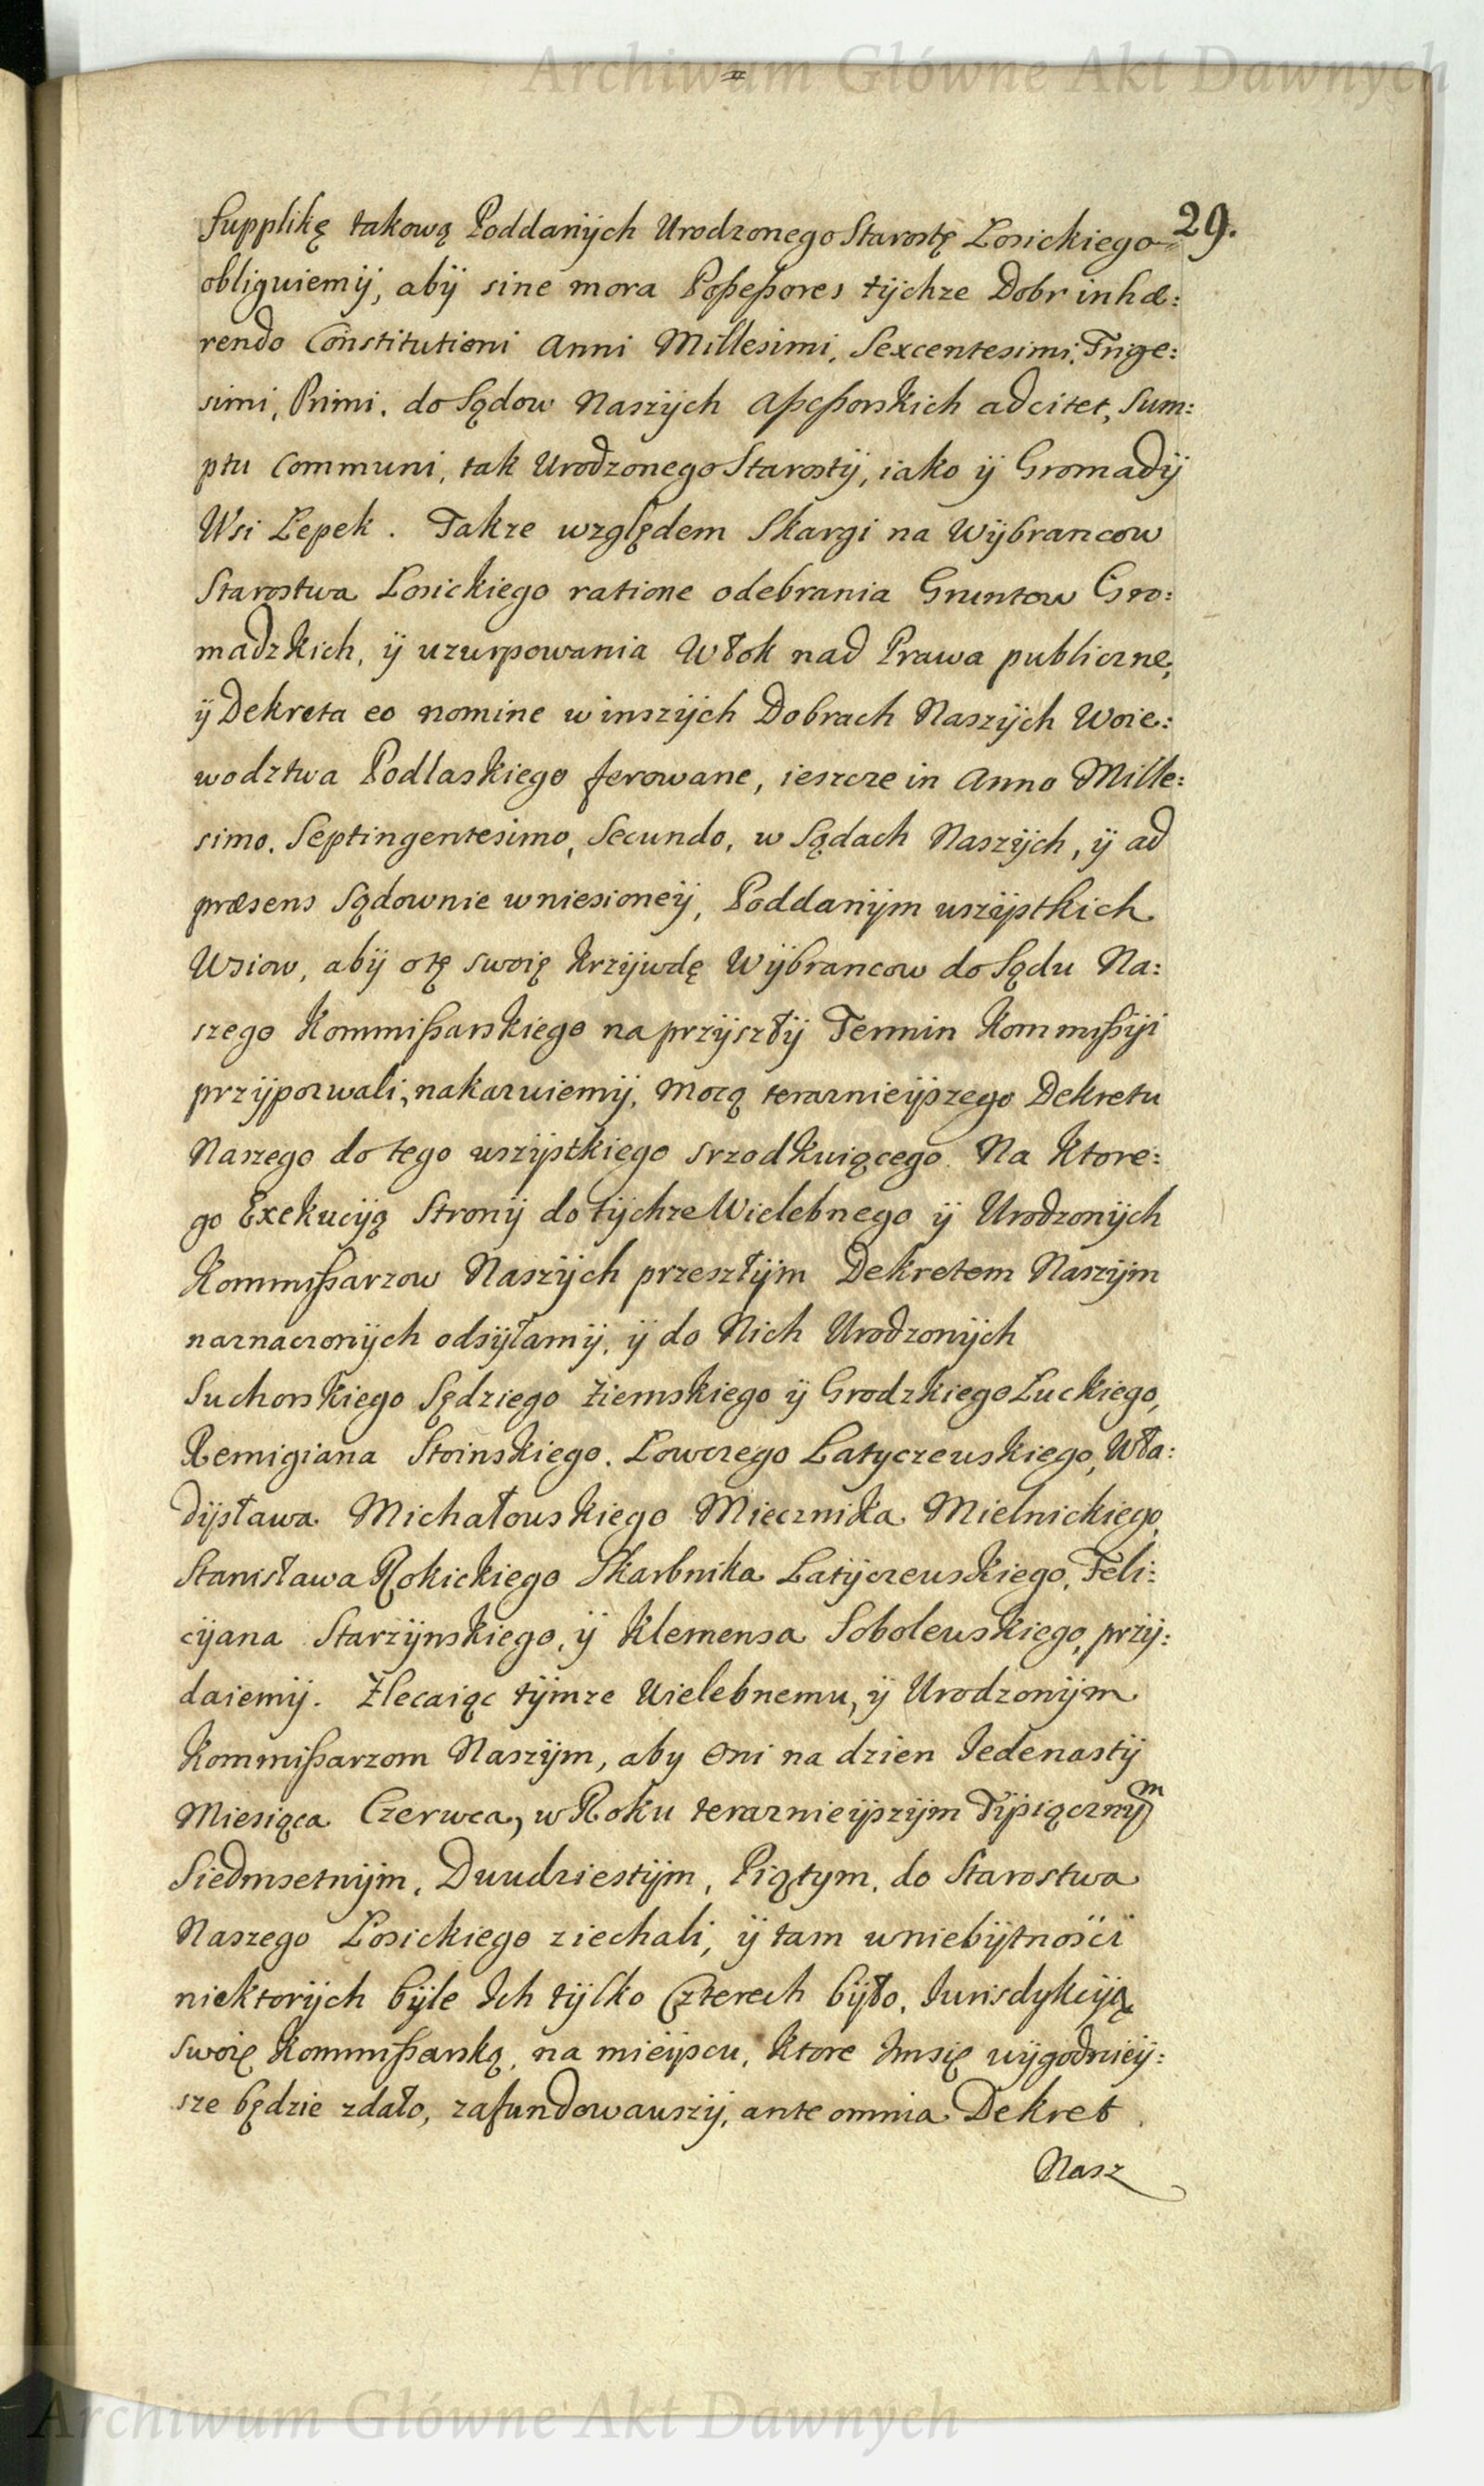 Archiwum Główne Akt Dawnych
29.
Supplikę takową Poddanÿch Urodzonego Starostę Łosickiego
obliguiemÿ, abÿ sine mora Poßeßores tÿchze Dobr inhæ:
rendo Constitutioni Anni Millesimi, Sexcentesimi, Trige:
simi, Primi. do Sądow Naszÿch Aßeßorskich adcitet, Sum:
ptu Communi, tak Urodzonego Starostÿ, iako ÿ Gromadÿ
Wsi Łepek. Takze względem Skargi na Wÿbrancow
Starostwa Łosickiego ratione odebrania Gruntow Gro:
madzkich, ÿ uzurpowania Włok nad Prawa publiczne,
ÿ Dekreta eo nomine w inszÿch Dobrach Naszÿch Woie:
wodztwa Podlaskiego ferowane, ieszcze in Anno Mille:
simo. Septingentesimo, Secundo, w Sądach Naszÿch, ÿ ad
præsens Sądownie wniesioneÿ, Poddanÿm wszÿstkich
Wsiow, abÿ o tę swoię krzÿwdę Wÿbrancow do Sądu Na:
szego Kommißarskiego na przÿszłÿ Termin Kommißÿi
przÿpozwali, nakazuiemÿ, Mocą teraznieÿszego Dekretu
Naszego do tego wszÿstkiego srzodkuiącego. Na ktore:
go Exekucÿą Stronÿ do tÿchze Wielebnego ÿ Urodzonÿch
Kommißarzow Naszÿch przeszłÿm Dekretem Naszÿm
naznaczonÿch odsÿłamÿ, ÿ do Nich Urodzonÿch
Suchorskiego Sędziego Ziemskiego ÿ Grodzkiego Łuckiego,
Remigiana Stoinskiego. Łowczego Latyczewskiego, Wła:
dÿsława Michałowskiego Miecznika Mielnickiego,
Stanisława Rokickiego Skarbnika Latÿczewskiego, Feli:
cÿana Starzÿnskiego, ÿ Klemensa Sobolewskiego, przÿ:
daiemÿ. Zlecaiąc tÿmze Wielebnemu, ÿ Urodzonÿm
Kommißarzom Naszÿm, aby Oni na dzien Jedenastÿ
Miesiąca Czerwca, w Roku teraznieÿszÿm Tÿsiącznÿm
Siedmsetnÿm, Dwudziestÿm, Piątym, do Starostwa
Naszego Łosickiego ziechali, ÿ tam w niebÿtności
niektorÿch bÿle Ich tÿlko Czterech bÿło, Jurisdykcÿą
swoię Kommißarską, na mieÿscu, ktore Im się wÿgodnieÿ:
sze będzie zdało, zafundowawszÿ, ante omnia Dekret
Nasz
Archiwum Główne Akt Dawnych